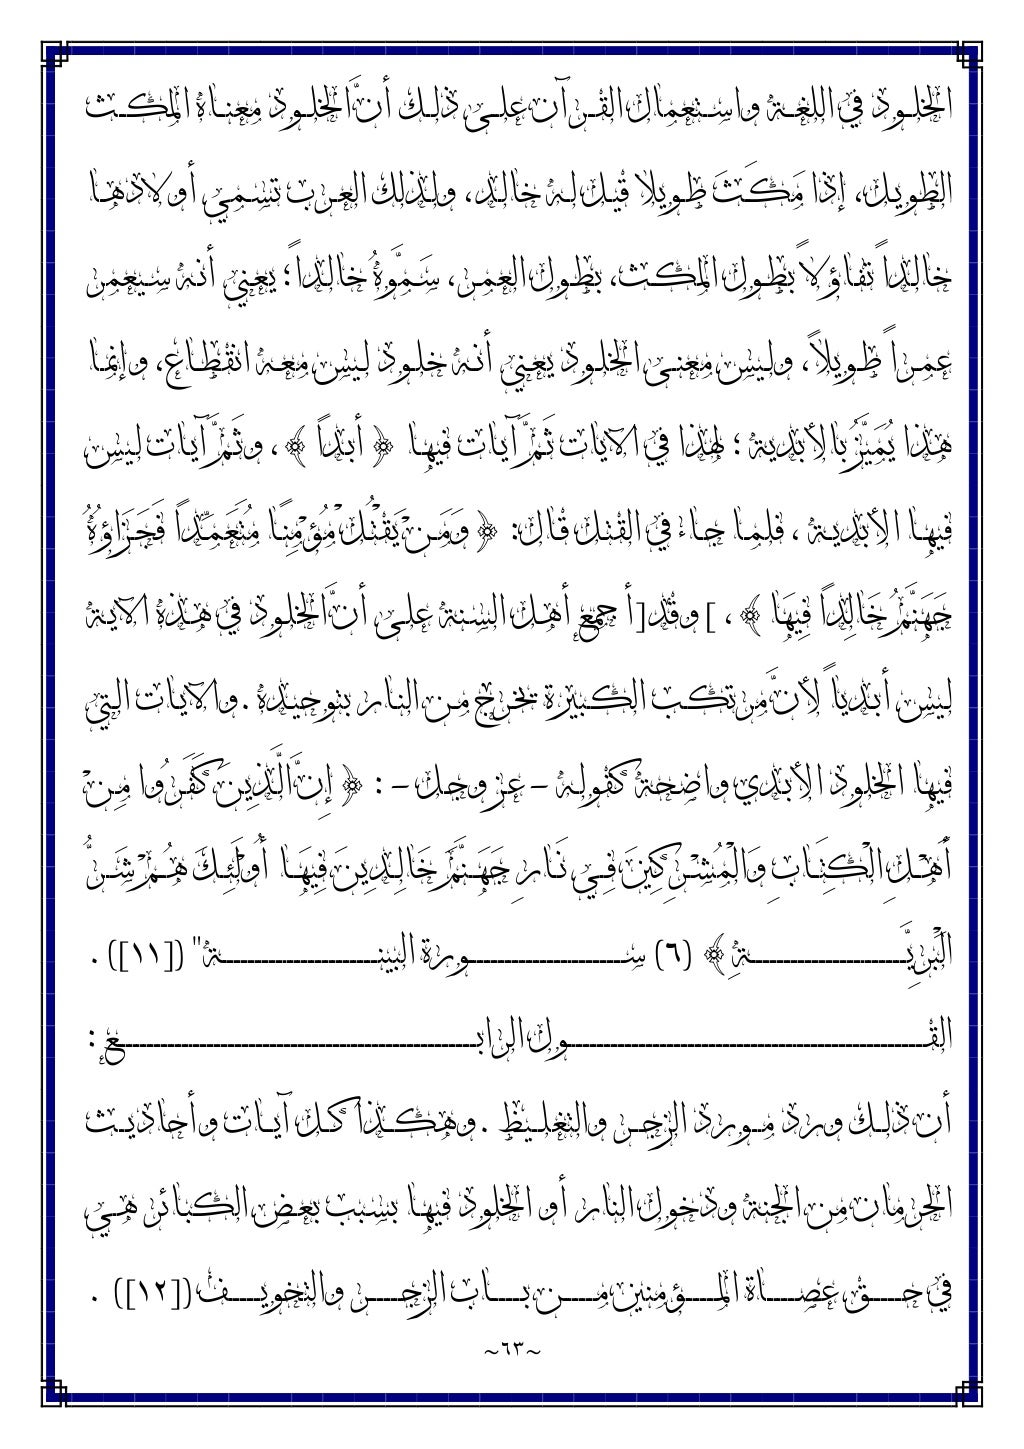 الخلود في اللغة واستعمال القرآن على ذلك أنَّ الخلود معناه المكث
الطويل، إذا مَكَثَ طويلا قيل له خالد، ولذلك العرب تسمي أولادها
خالداً تفاؤلاً بطول المكث، بطول العمر، سَمَّوهُ خالداً؛ يعني أنه سيعمر
عمراً طويلاً، وليس معنى الخلود يعني أنه خلود ليس معه انقطاع، وإنما
هذا يُمَيَّزُ بالأبدية ؛ لهذا في الآيات ثَمَّ آيات فيها ﴿ أبداً ﴾ ، وثَمَّ آيات ليس
فيها الأبدية ، فلما جاء في القتل قال: ﴿ وَمَن يَقْتُلْ مُؤْمِنًا مُتَعَمِّداً فَجَزَاؤُهُ
جَهَنَّمُ خَالِداً فِيهَا ﴾ ، ] وقد[أجمع أهل السنة على أنَّ الخلود في هذه الآية
ليس أبدياً لأنَّ مرتكب الكبيرة تخرج من النار بتوحيده .والآيات التي
فيها الخلود الأبدي واضحة كقوله – عز وجل – : ﴿ إِنَّ الَّذِينَ كَفَرُوا مِنْ
أَهْلِ الْكِتَابِ وَالْمُشْرِكِينَ فِي نَارِ جَهَنَّمَ خَالِدِينَ فِيهَا أُولَئِكَ هُمْ شَرُّ
الْبَرِيَّةِ ﴾ (٦) سورة البينة" ([١١]) .
القول الرابع :
أن ذلك ورد مورد الزجر والتغليظ .وهكذا كل آيات وأحاديث
الحرمان من الجنة ودخول النار أو الخلود فيها بسبب بعض الكبائر هي
في حق عصاة المؤمنين من باب الزجر والتخويف([١٢]) .
~٦٣~